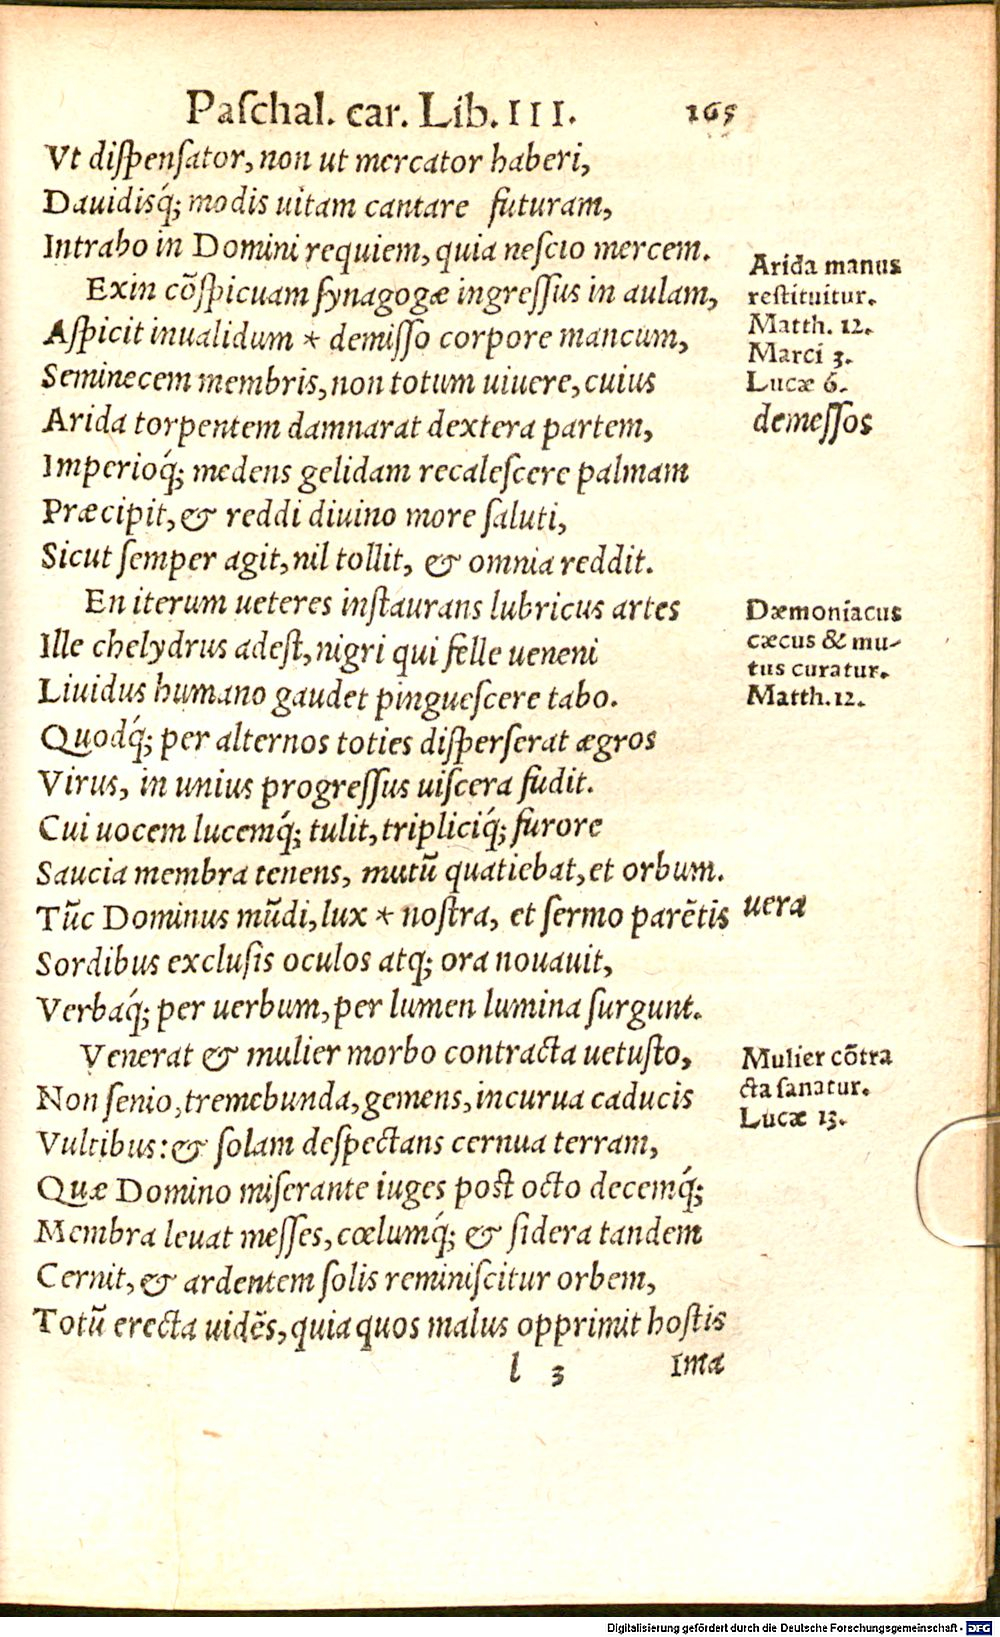 Paſchal. car. Lib. III. 165
Vt diſpenſator, non ut mercator haberi,
Dauidisq́; modis uitam cantare futuram,
Intrabo in Domini requiem, quia neſcio mercem.
Exin cõſpicuam ſynagogæ ingreſſus in aulam,
Aſpicit inualidum * demiſſo corpore mancum,
Seminecem membris, non totum uiuere, cuius
Arida torpentem damnarat dextera partem,
Imperioq́; medens gelidam recaleſcere palmam
Præcipit, & reddi diuino more ſaluti,
Sicut ſemper agit, nil tollit, & omnia reddit.
En iterum ueteres inſtaurans lubricus artes
Ille chelydrus adeſt, nigri qui felle ueneni
Liuidus humano gaudet pingueſcere tabo.
Quodq́; per alternos toties diſperſerat ægros
Virus, in unius progreſſus uiſcera fudit.
Cui uocem lucemq́; tulit, tripliciq́; furore
Saucia membra tenens, mutũ quatiebat, et orbum.
Tũc Dominus mũdi, lux * noſtra, et ſermo parẽtis
Sordibus excluſis oculos atq; ora nouauit,
Verbaq́; per uerbum, per lumen lumina ſurgunt.
Venerat & mulier morbo contracta uetuſto,
Non ſenio, tremebunda, gemens, incurua caducis
Vultibus: & ſolam deſpectans cernua terram,
Quæ Domino miſerante iuges poſt octo decemq́;
Membra leuat meſſes, cœlumq́; & ſidera tandem
Cernit, & ardentem ſolis reminiſcitur orbem,
Totũ erecta uidẽs, quia quos malus opprimit hoſtis
l 3 Ima
Arida manus
reſtituitur.
Matth. 12.
Marci 3.
Lucæ 6.
demeſſos
Dæmoniacus
cæcus & mu-
tus curatur.
Matth. 12.
uera
Mulier cõtra
cta ſanatur.
Lucæ 13.
Digitalisierung gefördert durch die Deutsche Forschungsgemeinschaft - DFG